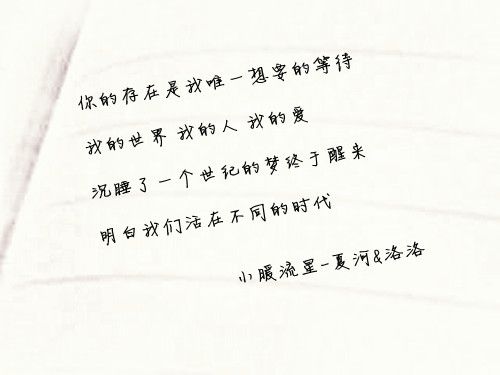 你的存在是我唯一想要的等待
我的世界 我的人 我的爱
沉睡了一个世纪的梦终于醒来
明白我们活在不同的时代
小暖流星-夏河&洛洛